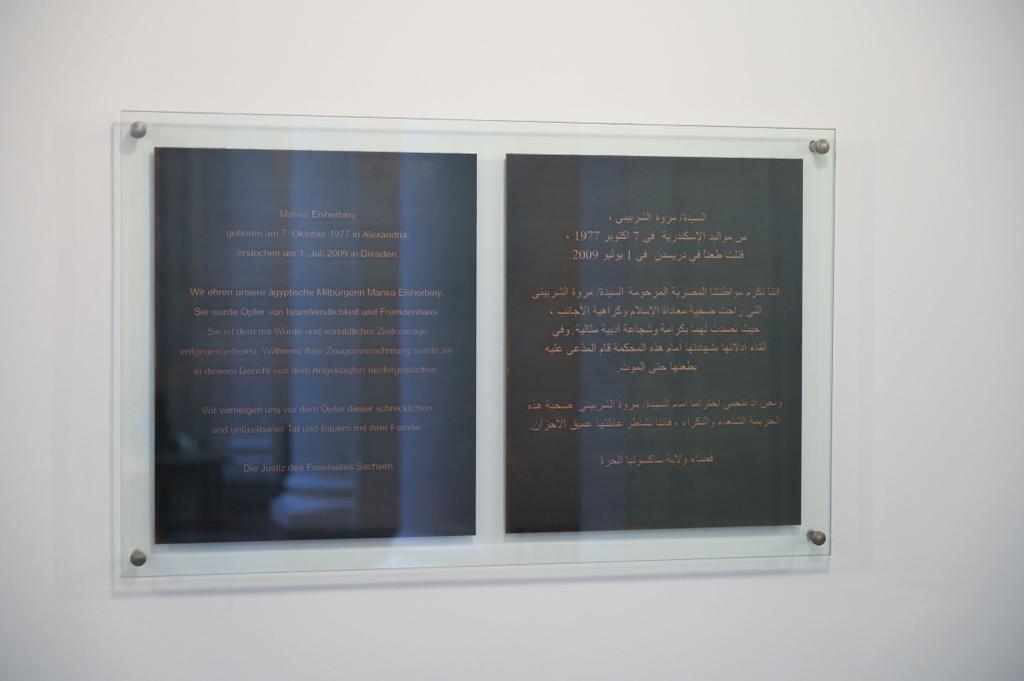 Marwa Elsherbiny,
geboren am 7. Oktober 1977 in Alexandria;
erstochen am 1. Juli 2009 in Dresden.
Wir ehren unsere ägyptische Mitbürgerin Marwa Elsherbiny.
Sie wurde Opfer von Islamfeindlichkeit und Fremdenhass.
Sie ist dem mit Würde und vorbildlicher Zivilcourage
entgegengetreten. Während ihrer Zeugenvernehmung wurde sie
in diesem Gericht von dem Angeklagten niedergestochen.
Wir verneigen uns vor dem Opfer dieser schrecklichen
und unfassbaren Tat und trauern mit ihrer Familie.
Die Justiz des Freistaates Sachsen
السيدة/ مروة الشربيني ،
من مواليد الإسكندرية في 7 أكتوبر 1977 ،
قتلت طعناً في دريسدن في 1 يوليو 2009.
اننا نكرم مواطنتنا المصرية المرحومة السيدة/ مروة الشربيني
التى راحت ضحية معاداة الإسلام وكراهية الأجانب ،
حيث تصدت لهما بكرامة وشجاعة أدبية مثالية. وفي
أثناء إدلائها بشهادتها أمام هذه المحكمة قام المدَّعى عليه
بطعنها حتى الموت.
ونحن اذ ننحني احتراما أمام السيدة/ مروة الشربيني ضحية هذه
الجريمة الشنعاء والنكراء ، فاننا نشاطر عائلتها عميق الاحزان.
قضاء ولاية ساكسونيا الحرة